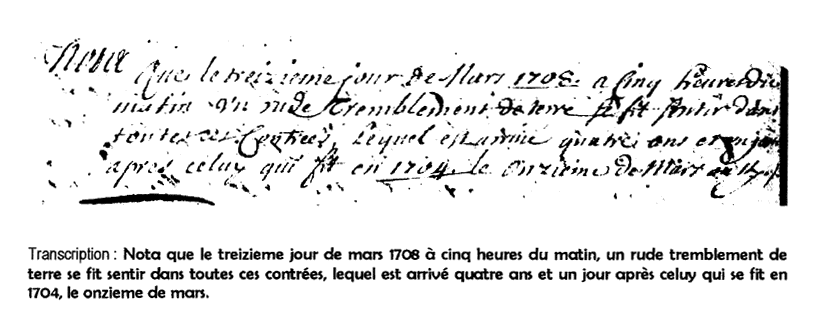 Nota
Que le treizieme jour de Mars 1708. a cinq heures du
matin un rude tremblement de terre se fit sentir dans
toutes ces Contrées, Lequel est arrivé quatre ans et un jour
apres celuy qui fit en 1704. le onzieme de Mars
Transcription : Nota que le treizieme jour de mars 1708 à cinq heures du matin, un rude tremblement de
terre se fit sentir dans toutes ces contrées, lequel est arrivé quatre ans et un jour après celuy qui se fit en
1704, le onzieme de mars.